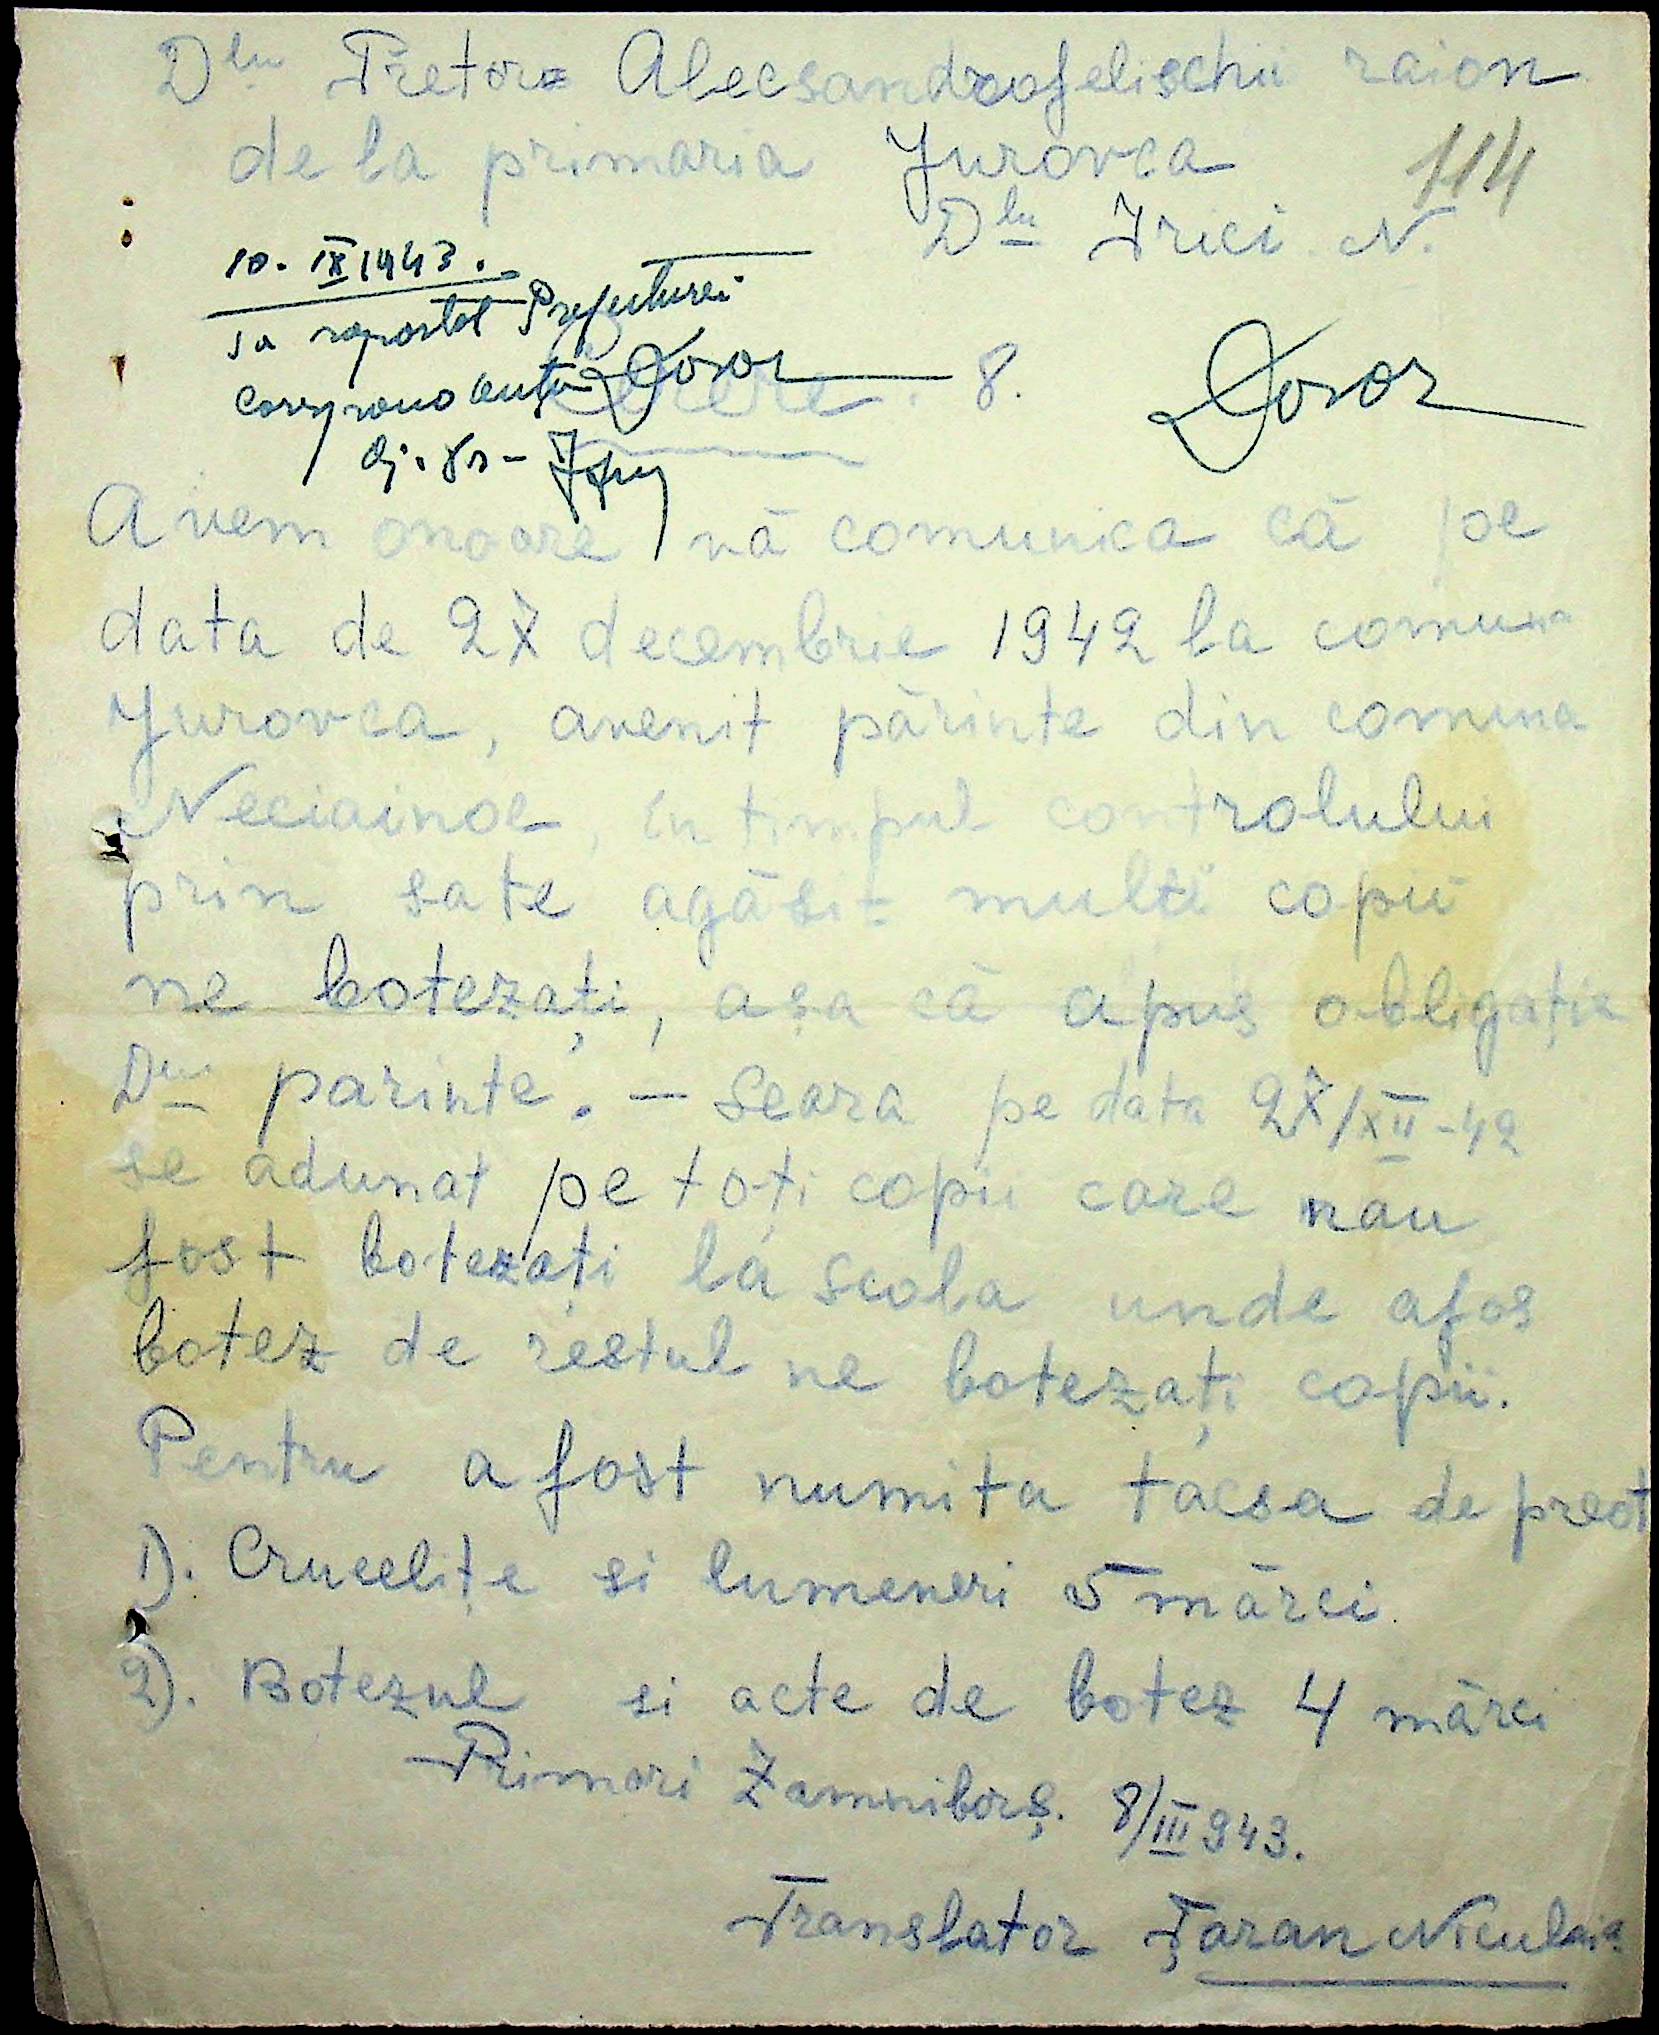 Dlu Pretore Alecsandrofelischii raion
de la primaria Jurovca
114
Dlu Irici N.
10. IX 1943.
sa raportat Prefecturei
Dosar
Cerere. 8.
Dosar
Avem onoare vă comunica că pe
data de 27 decembrie 1942 la comuna
Jurovca, avenit părinte din comuna
Neciainoe, în timpul controlului
prin sate agăsit multi copii
ne botezați, așa că apus obligație
Dlui parinte. — Seara pe data 27/XII-42
se adunat pe toți copii care nau
fost botezați la scola unde afos
botez de restul ne botezați copii.
Pentru a fost numita tacsa de preot
1). Crucelițe si lumeneri 5 mărci.
2). Botezul si acte de botez 4 mărci
Primari Zamniborș. 8/III 943.
Translator Țaran Niculaia